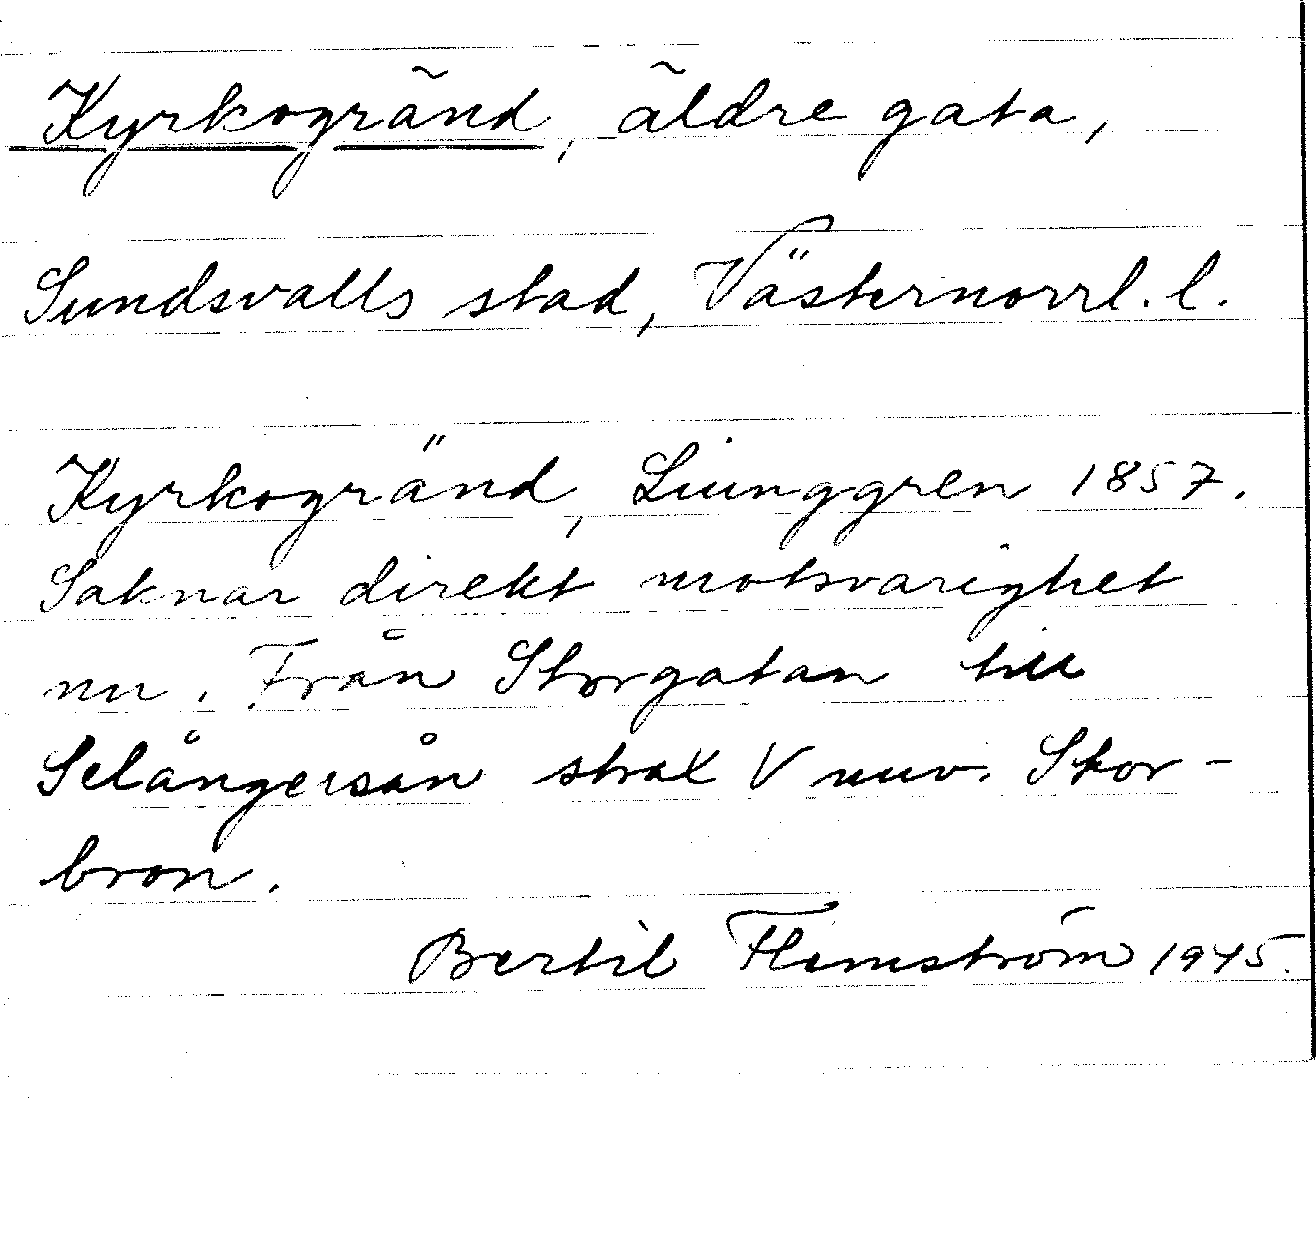 Kyrkogränd, äldre gata,
Sundsvalls stad, Västernorrl. l.
Kyrkogränd, Ljunggren 1857.
Saknar direkt motsvarighet
nu. Från Storgatan till
Selångersån strax V nuv. Stor-
bron.
Bertil Flemström 1945.